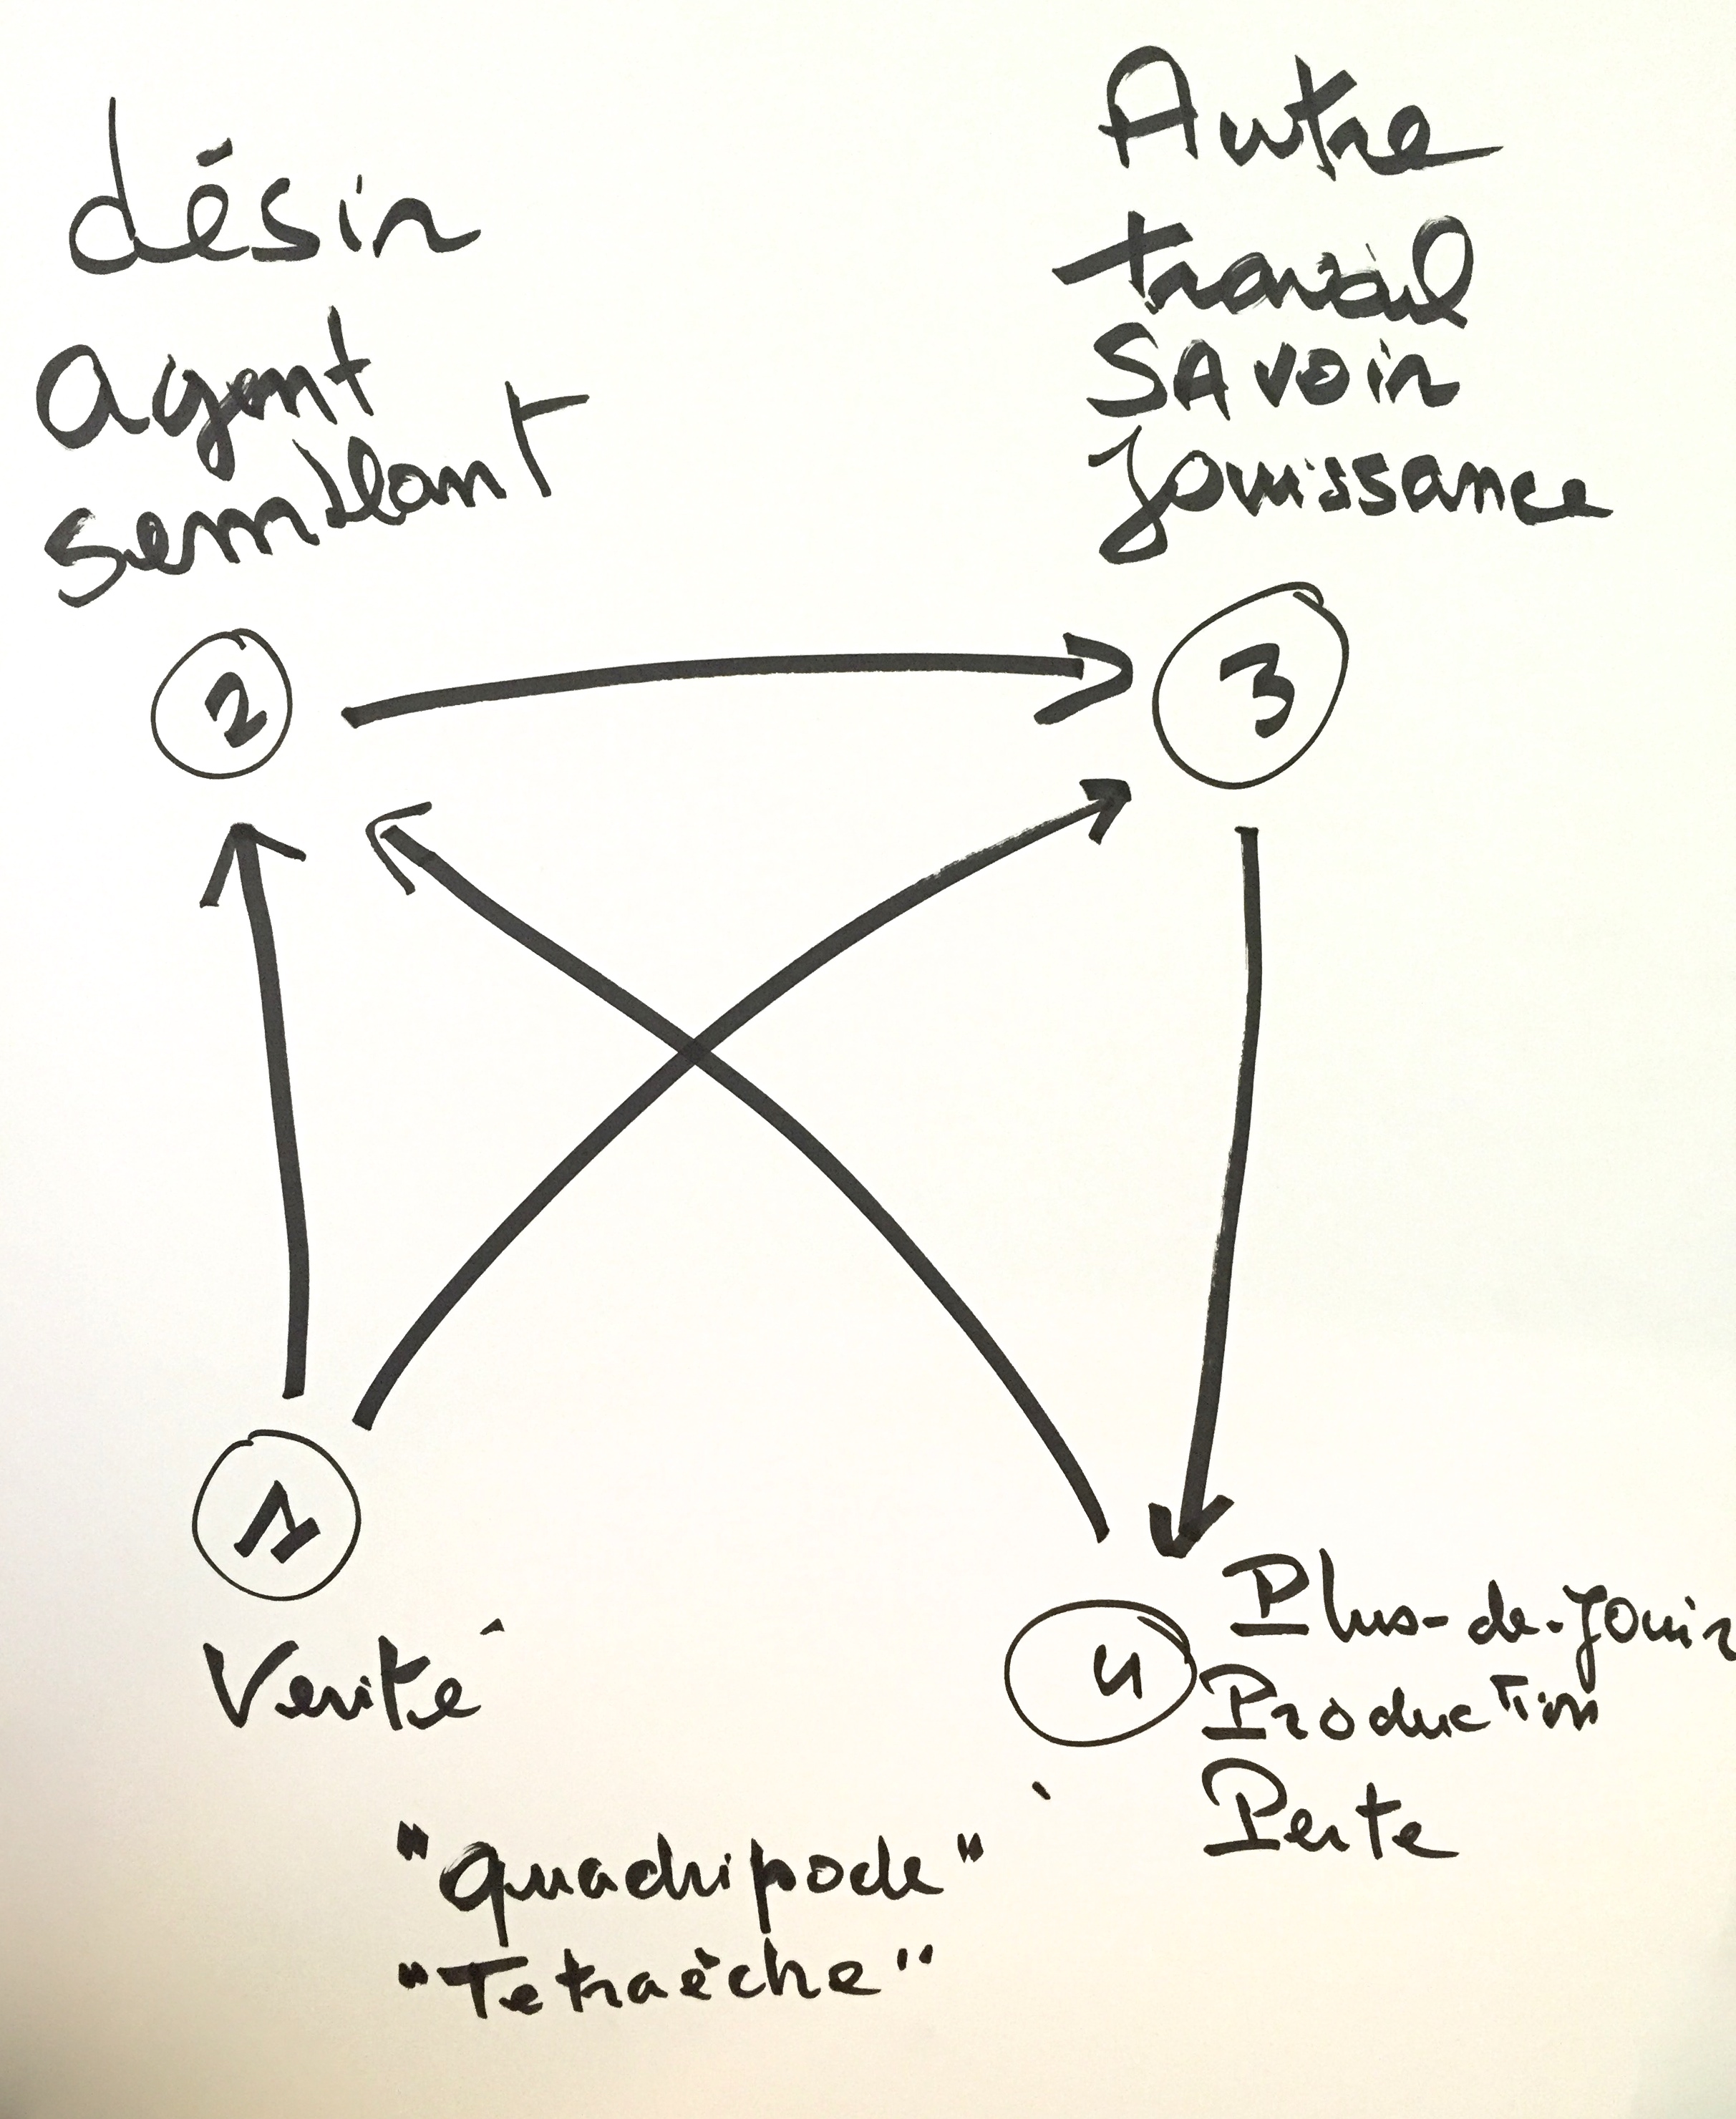 désir
agent
semblant
Autre
travail
SAVOIR
Jouissance
2
3
1
Verité
4
Plus-de-Jouir
Production
Perte
"quadripode"
"Tetraèche"